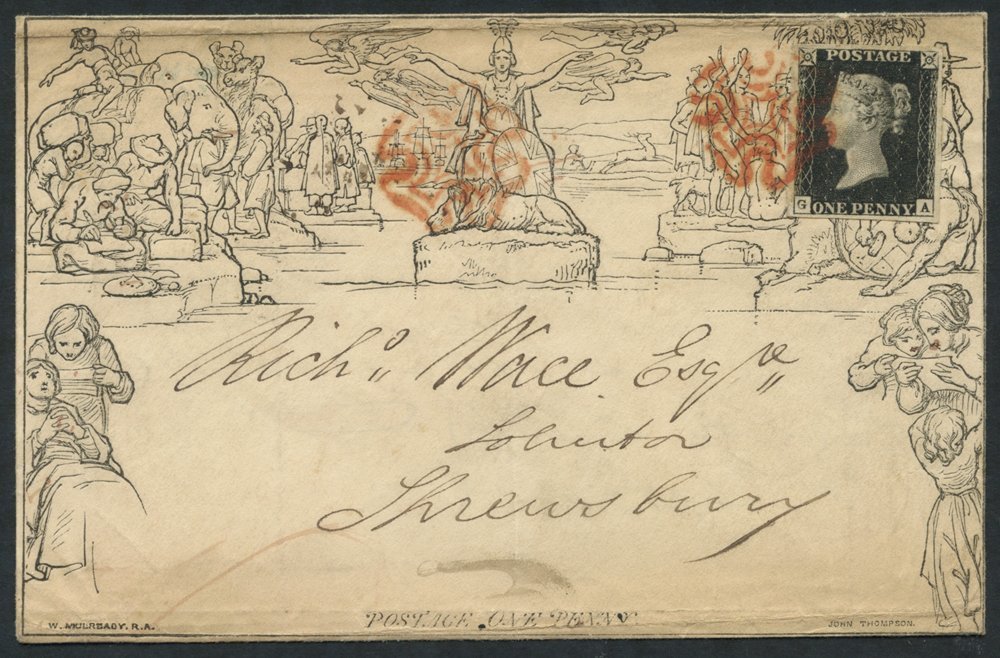 POSTAGE
G ONE PENNY A
Rich.d Wace Esq.re
Solicitor
Shrewsbury
POSTAGE ONE PENNY.
W. MULREADY. R.A.
JOHN THOMPSON.